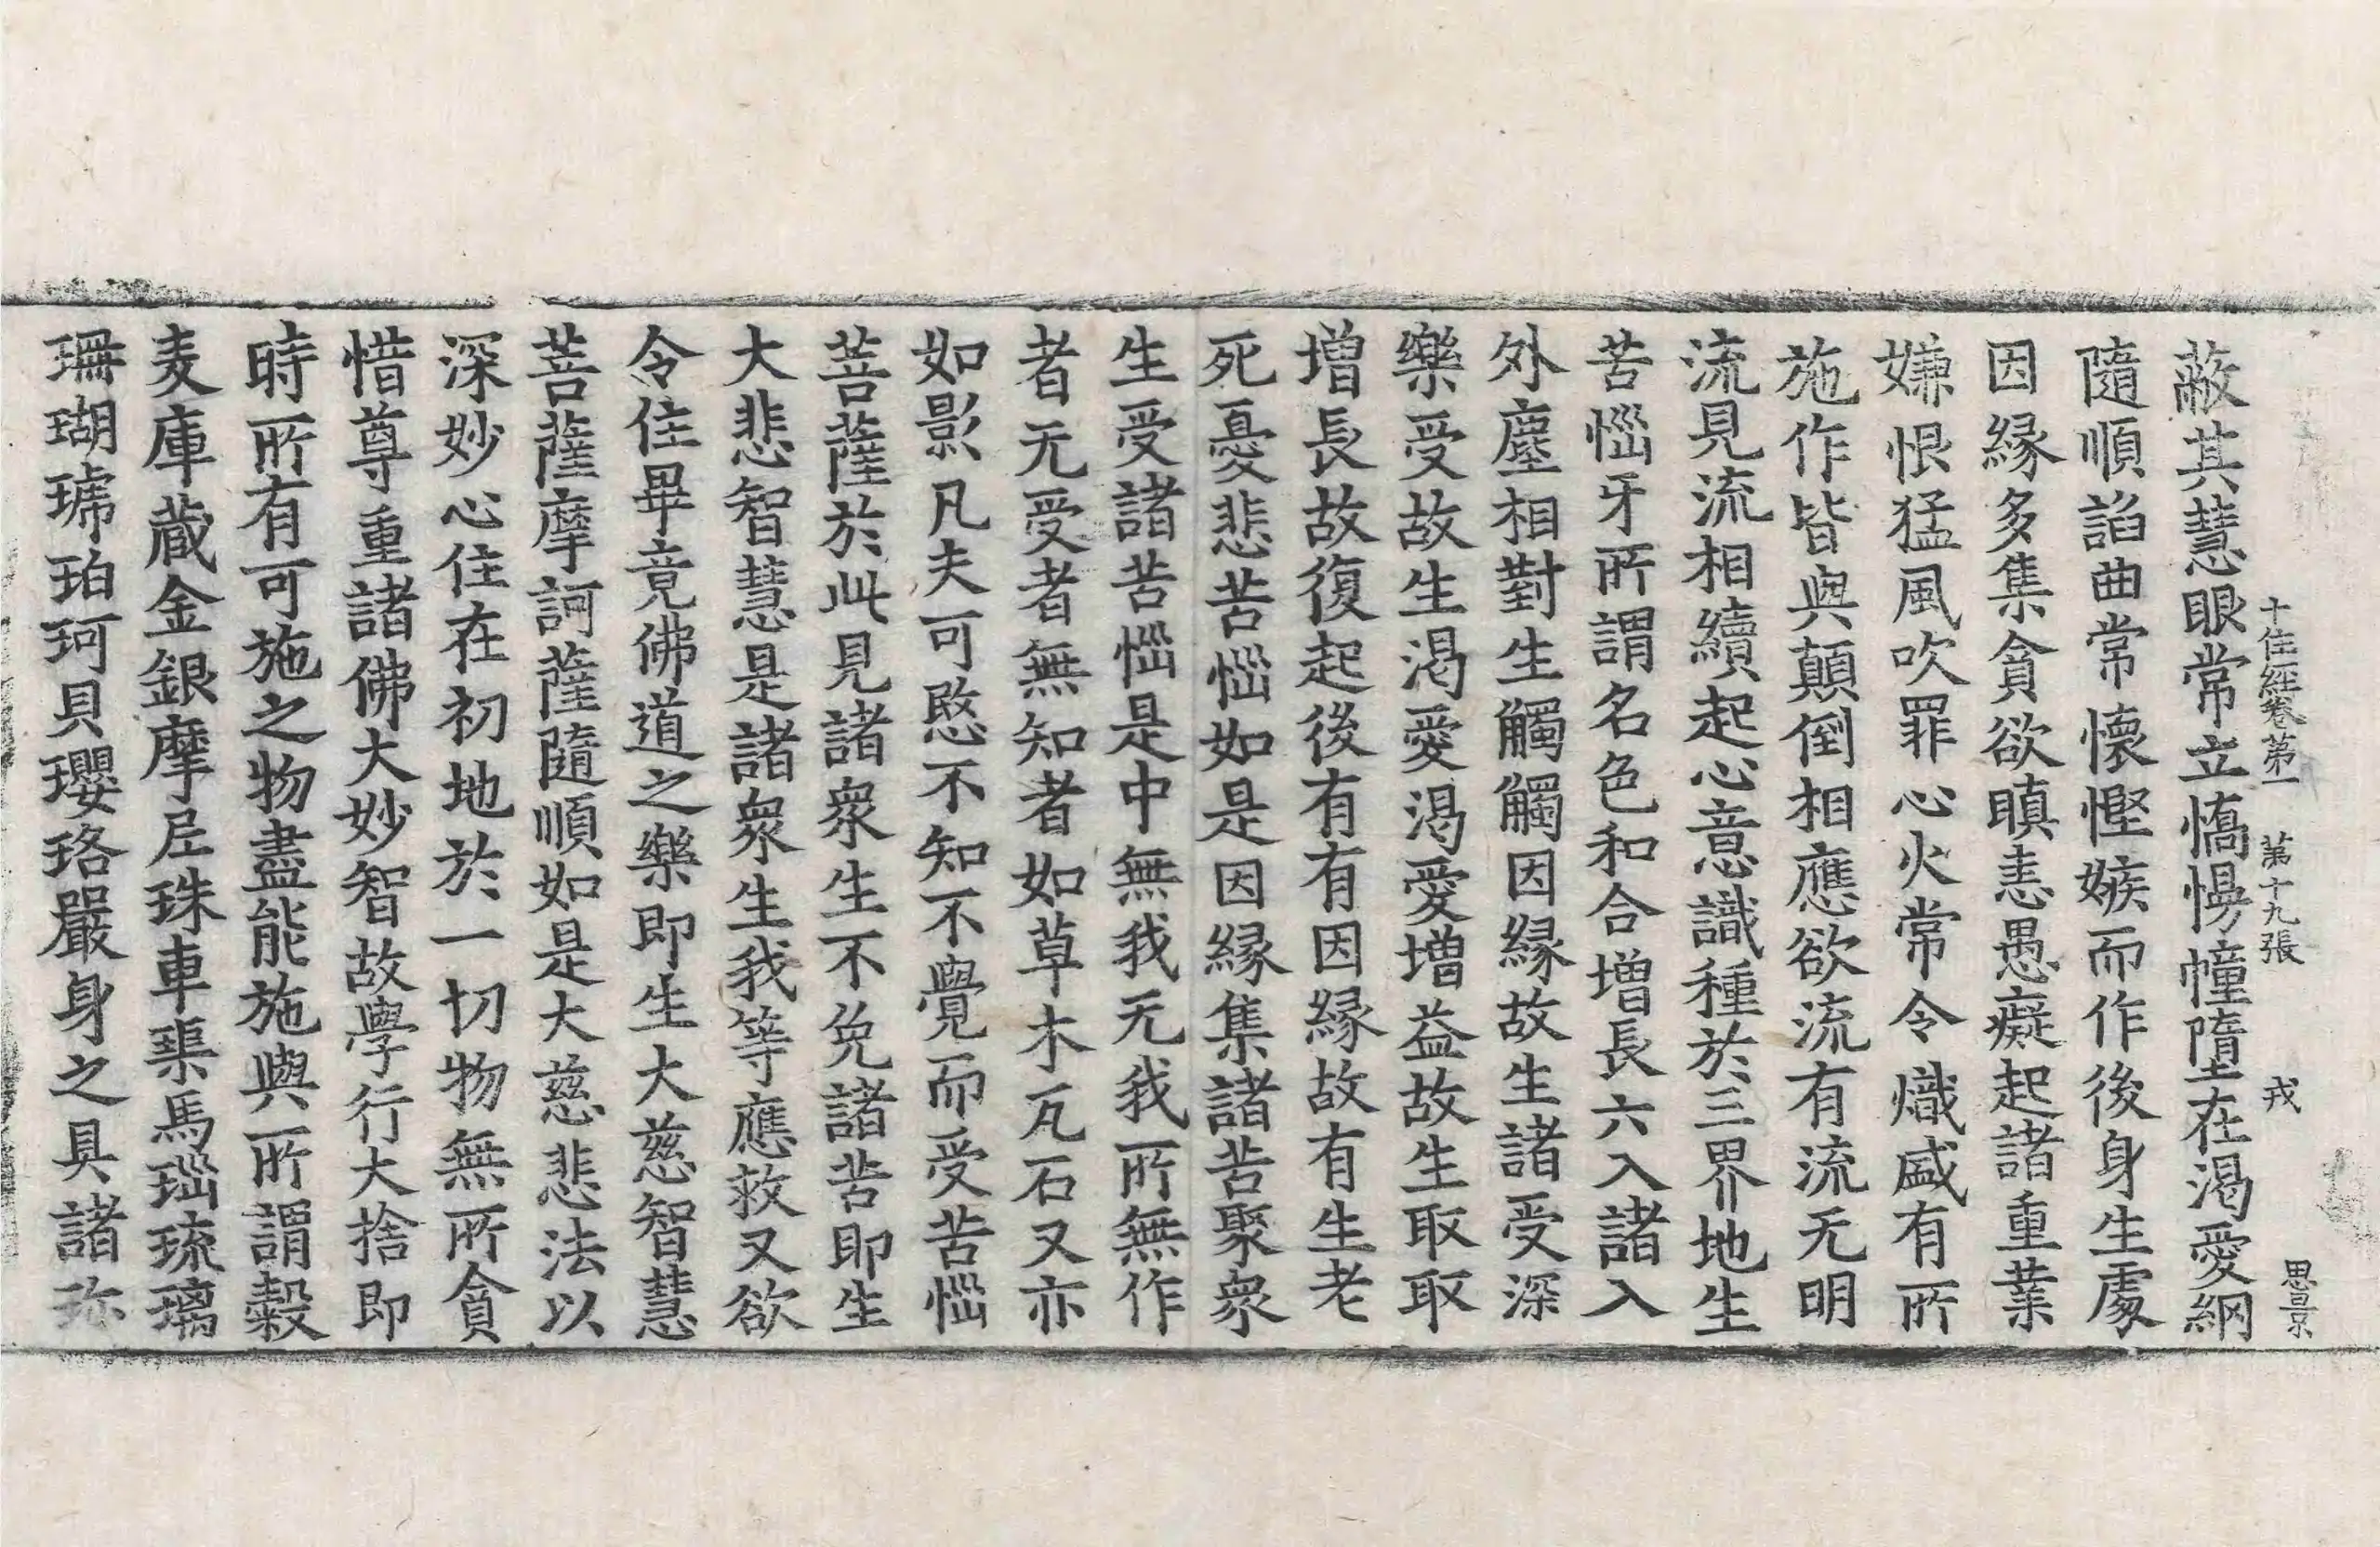 十住經卷第一 第十九張 戎 思景
蔽其慧眼常立憍慢幢墮在渴愛網
隨順諂曲常懷慳嫉而作後身生處
因緣多集貪欲瞋恚愚癡起諸重業
嫌恨猛風吹罪心火常令熾盛有所
施作皆與顛倒相應欲流有流无明
流見流相續起心意識種於三界地生
苦惱牙所謂名色和合增長六入諸入
外塵相對生觸觸因緣故生諸受深
樂受故生渴愛渴愛增益故生取取
增長故復起後有有因緣故有生老
死憂悲苦惱如是因緣集諸苦聚衆
生受諸苦惱是中無我无我所無作
者无受者無知者如草木瓦石又亦
如影凡夫可愍不知不覺而受苦惱
菩薩於此見諸衆生不免諸苦即生
大悲智慧是諸衆生我等應救又欲
令住畢竟佛道之樂即生大慈智慧
菩薩摩訶薩隨順如是大慈悲法以
深妙心住在初地於一切物無所貪
惜尊重諸佛大妙智故學行大捨即
時所有可施之物盡能施與所謂穀
麦庫藏金銀摩尼珠車𤦲馬瑙琉璃
珊瑚琥珀珂貝瓔珞嚴身之具諸珎